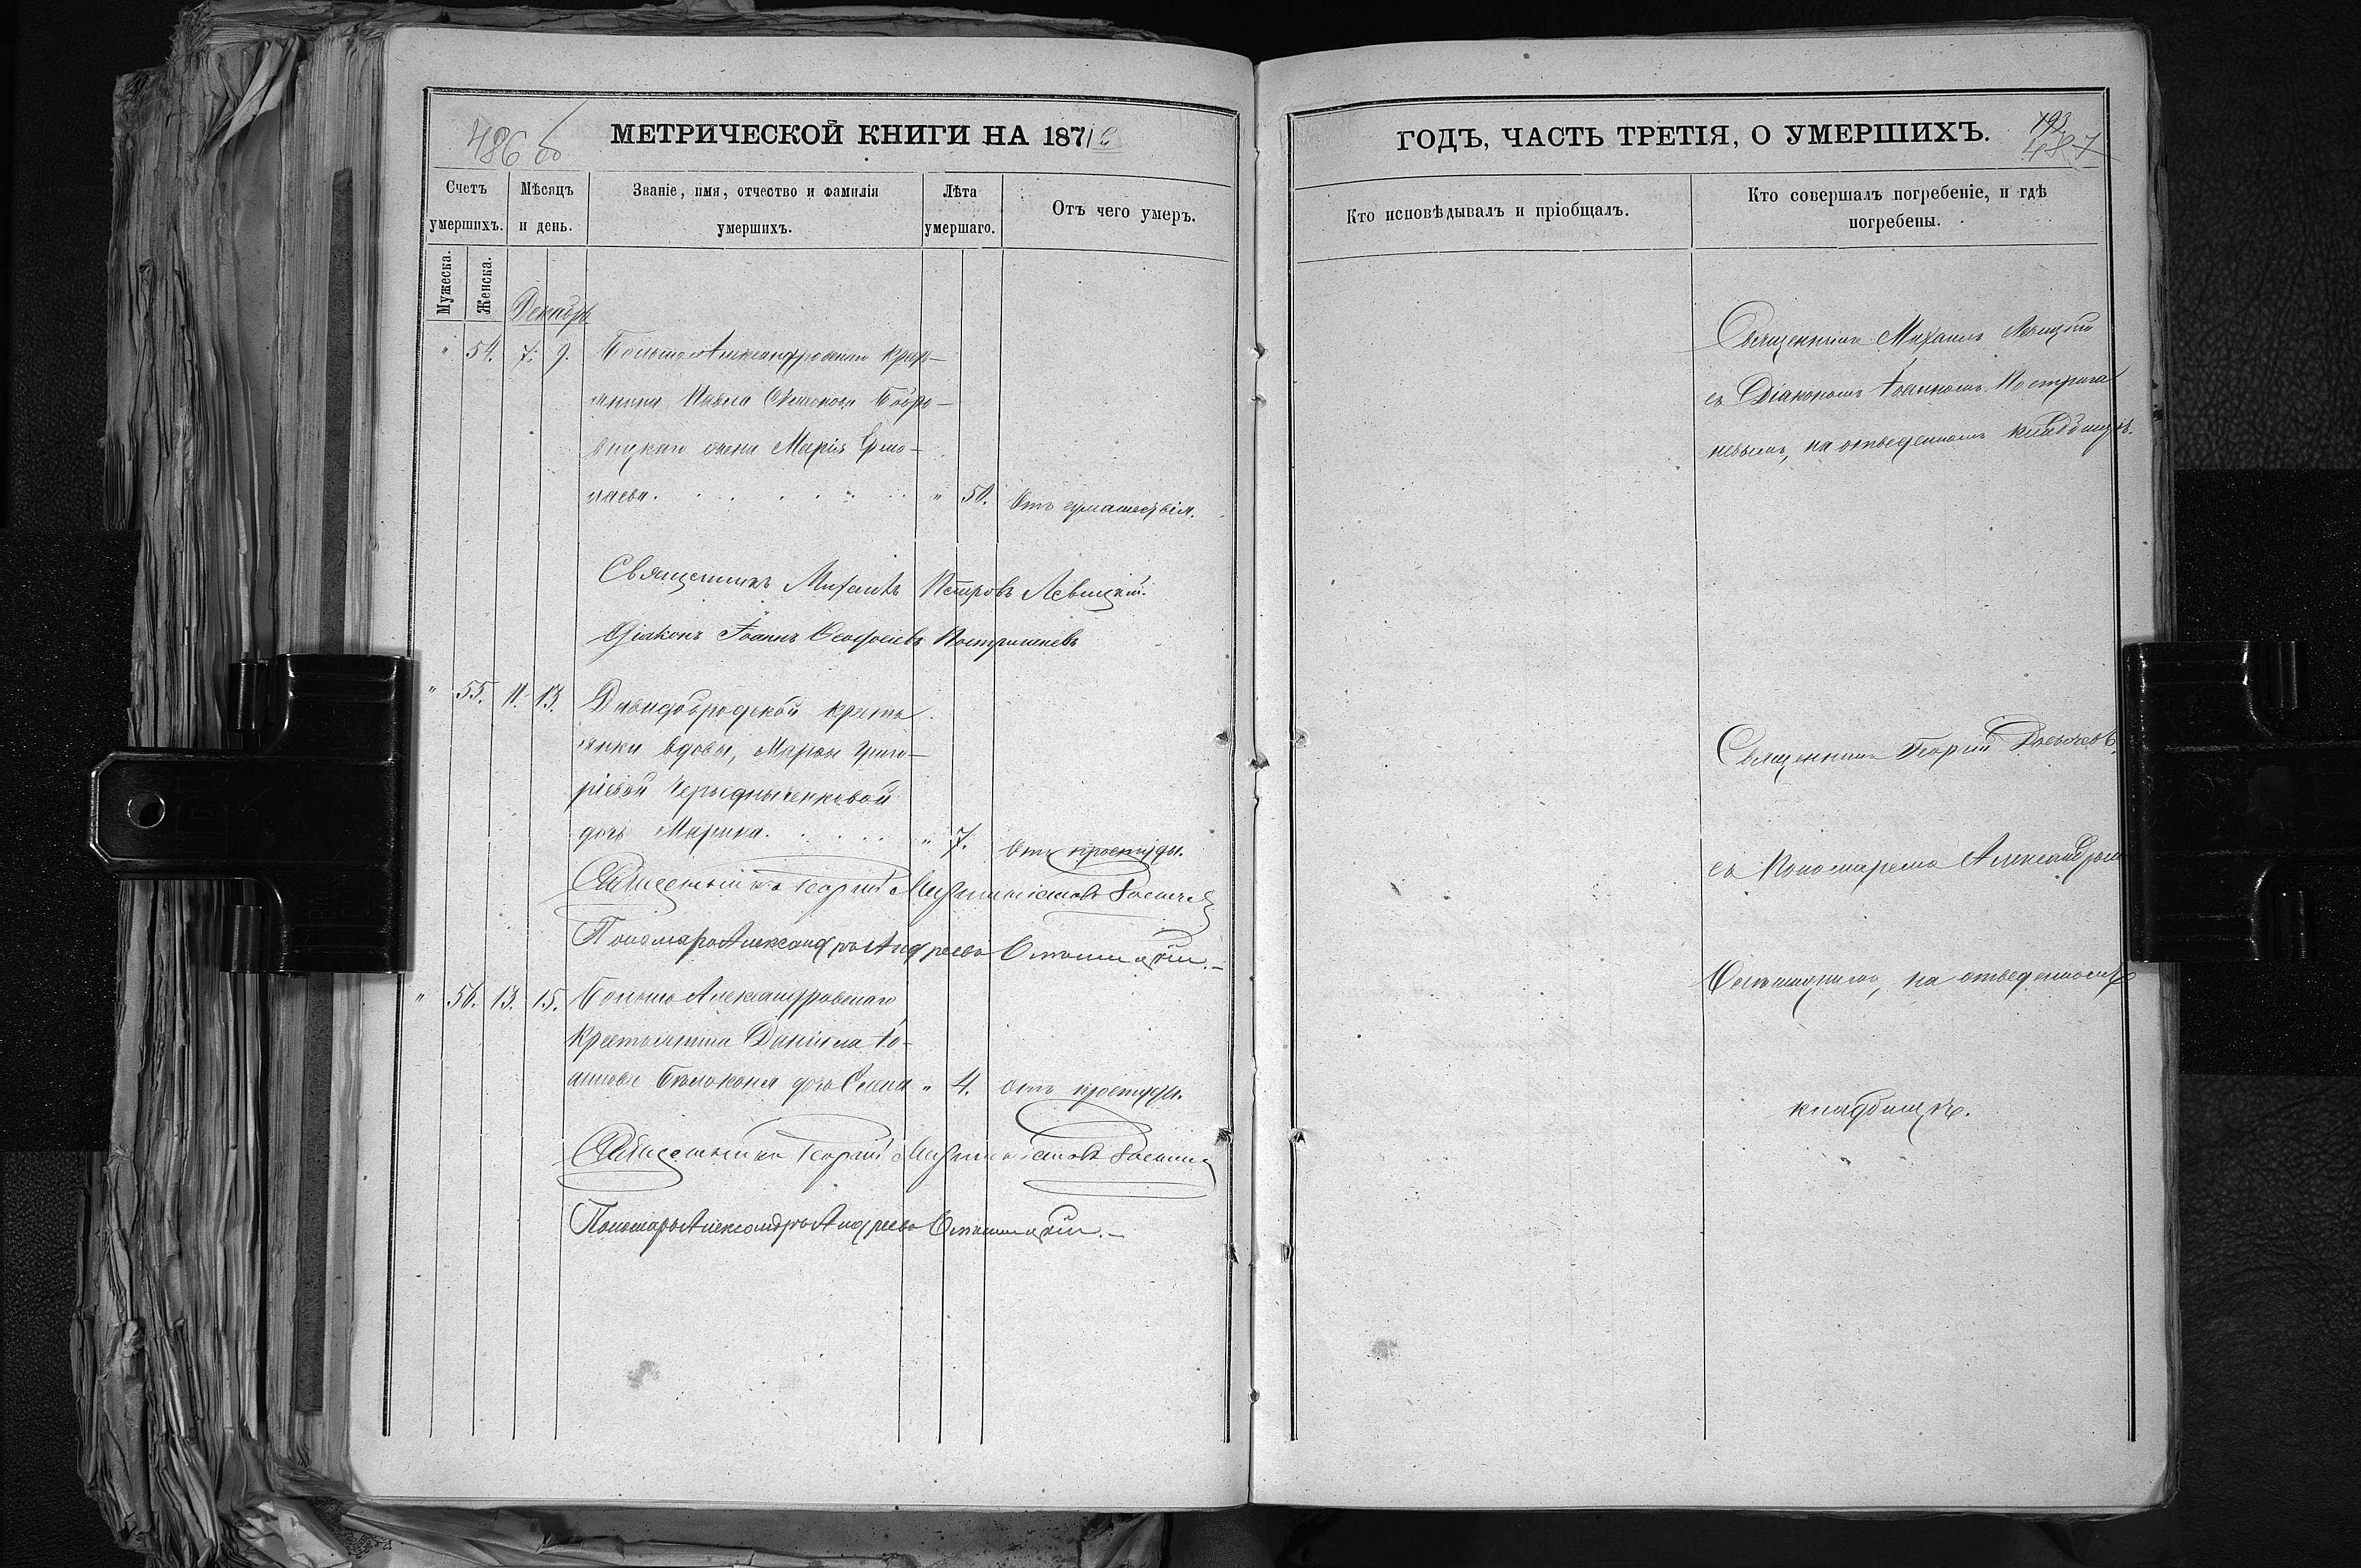 486 об
МЕТРИЧЕСКОЙ КНИГИ НА 1871
Счетъ умершихъ.
Мѣсяцъ и день.
Званіе, имя, отчество и фамилія умершихъ.
Лѣта умершаго.
Отъ чего умеръ.
Мужеска.
Женска.
Декабрь
" 54. 7. 9. Больше Александровскаго кресть-
янина Павла Симеонова
жена Марія Ермо-
лаева. " 50. Отъ сумашествія.
Священникъ Михаилъ Петровъ Левицкій.
Діаконъ Іоаннъ Ѳеодосіевъ Постригачевъ
" 55. 11. 13. Давидобродской кресть
янки вдовы, Марѳы Григо-
ріевой
дочь Марина. " 7. Отъ простуды.
Священникъ Георгій
Пономарь Александръ Андреевъ
" 56. 13. 15. Больше Александровскаго
Крестьянина Даніила Іо-
аннова Бѣлоконя дочь Елена " 4. отъ простуды.
Священникъ Георгій
Пономарь Александръ Андреевъ
ГОДЪ, ЧАСТЬ ТРЕТІЯ, О УМЕРШИХЪ.
193.
487
Кто исповѣдывалъ и пріобщалъ.
Кто совершалъ погребеніе, и гдѣ погребены.
Священникъ Михаилъ Левицкій
съ Діакономъ Іоанномъ Пострига
чевымъ, на отведенномъ кладбищѣ.
Священникъ Георгій
съ Пономаремъ Александромъ
на отведенномъ
кладбищѣ.